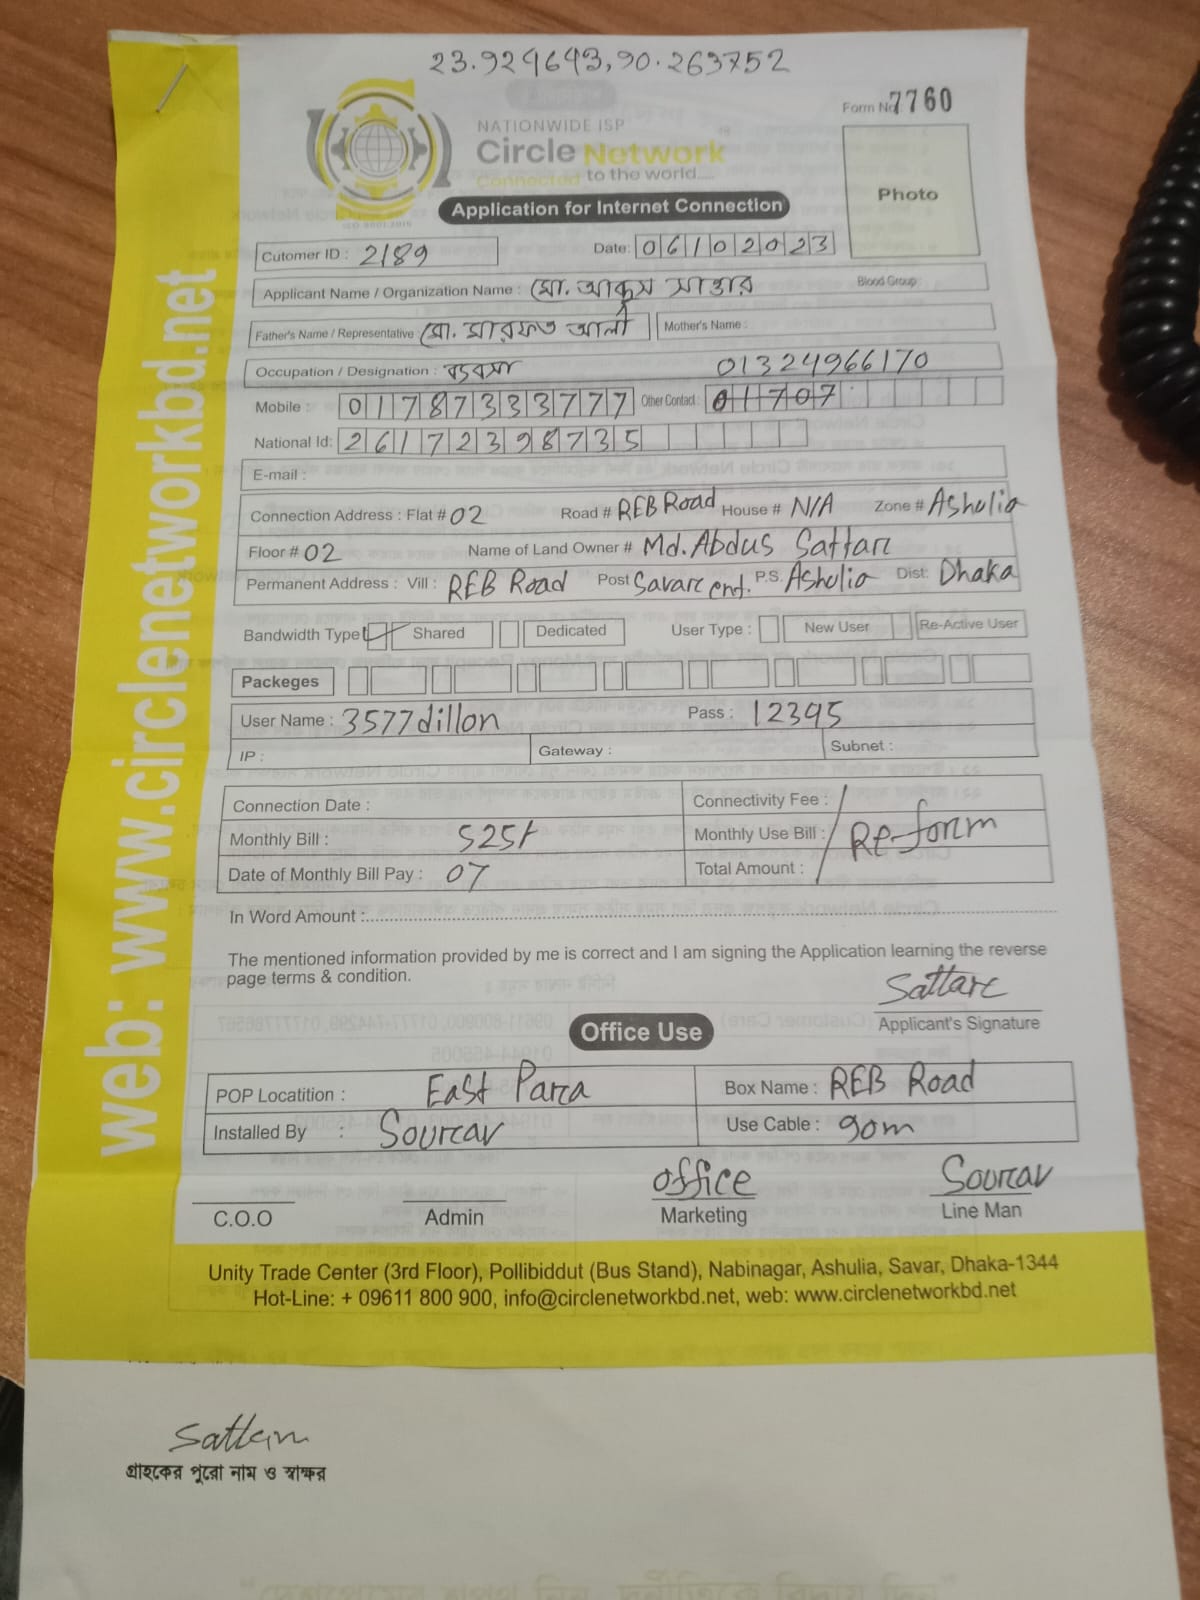 23.929643,90.263752
Form No. 7760
NATIONWIDE ISP
Circle Network
Connected to the world.....
ISO 9001:2015
Photo
Application for Internet Connection
Cutomer ID : 2189 Date: 06102023
Applicant Name / Organization Name : মো. আব্দুস সাত্তার Blood Group :
Father's Name / Representative মো. মারফত আলী Mother's Name :
Occupation / Designation : ব্যবসা 01324966170
Mobile : 01787333777 Other Contact : 01707
National Id: 26172398735
E-mail :
Connection Address : Flat # 02 Road # REB Road House # N/A Zone # Ashulia
Floor # 02 Name of Land Owner # Md. Abdus Sattar
Permanent Address : Vill : REB Road Post Savar cent. P.S. Ashulia Dist: Dhaka
Bandwidth Type Shared Dedicated User Type : New User Re-Active User
Packeges
User Name : 3577dillon Pass : 12395
IP : Gateway : Subnet :
Connection Date : Connectivity Fee :
Monthly Bill : 525/- Monthly Use Bill : Re-form
Date of Monthly Bill Pay : 07 Total Amount :
In Word Amount :
The mentioned information provided by me is correct and I am signing the Application learning the reverse
page terms & condition.
Sattar
Applicant's Signature
Office Use
POP Locatition : East Para Box Name : REB Road
Installed By : Sourav Use Cable : 90m
office Sourav
C.O.O Admin Marketing Line Man
Unity Trade Center (3rd Floor), Pollibiddut (Bus Stand), Nabinagar, Ashulia, Savar, Dhaka-1344
Hot-Line: + 09611 800 900, info@circlenetworkbd.net, web: www.circlenetworkbd.net
web: www.circlenetworkbd.net
গ্রাহকের পুরো নাম ও স্বাক্ষর